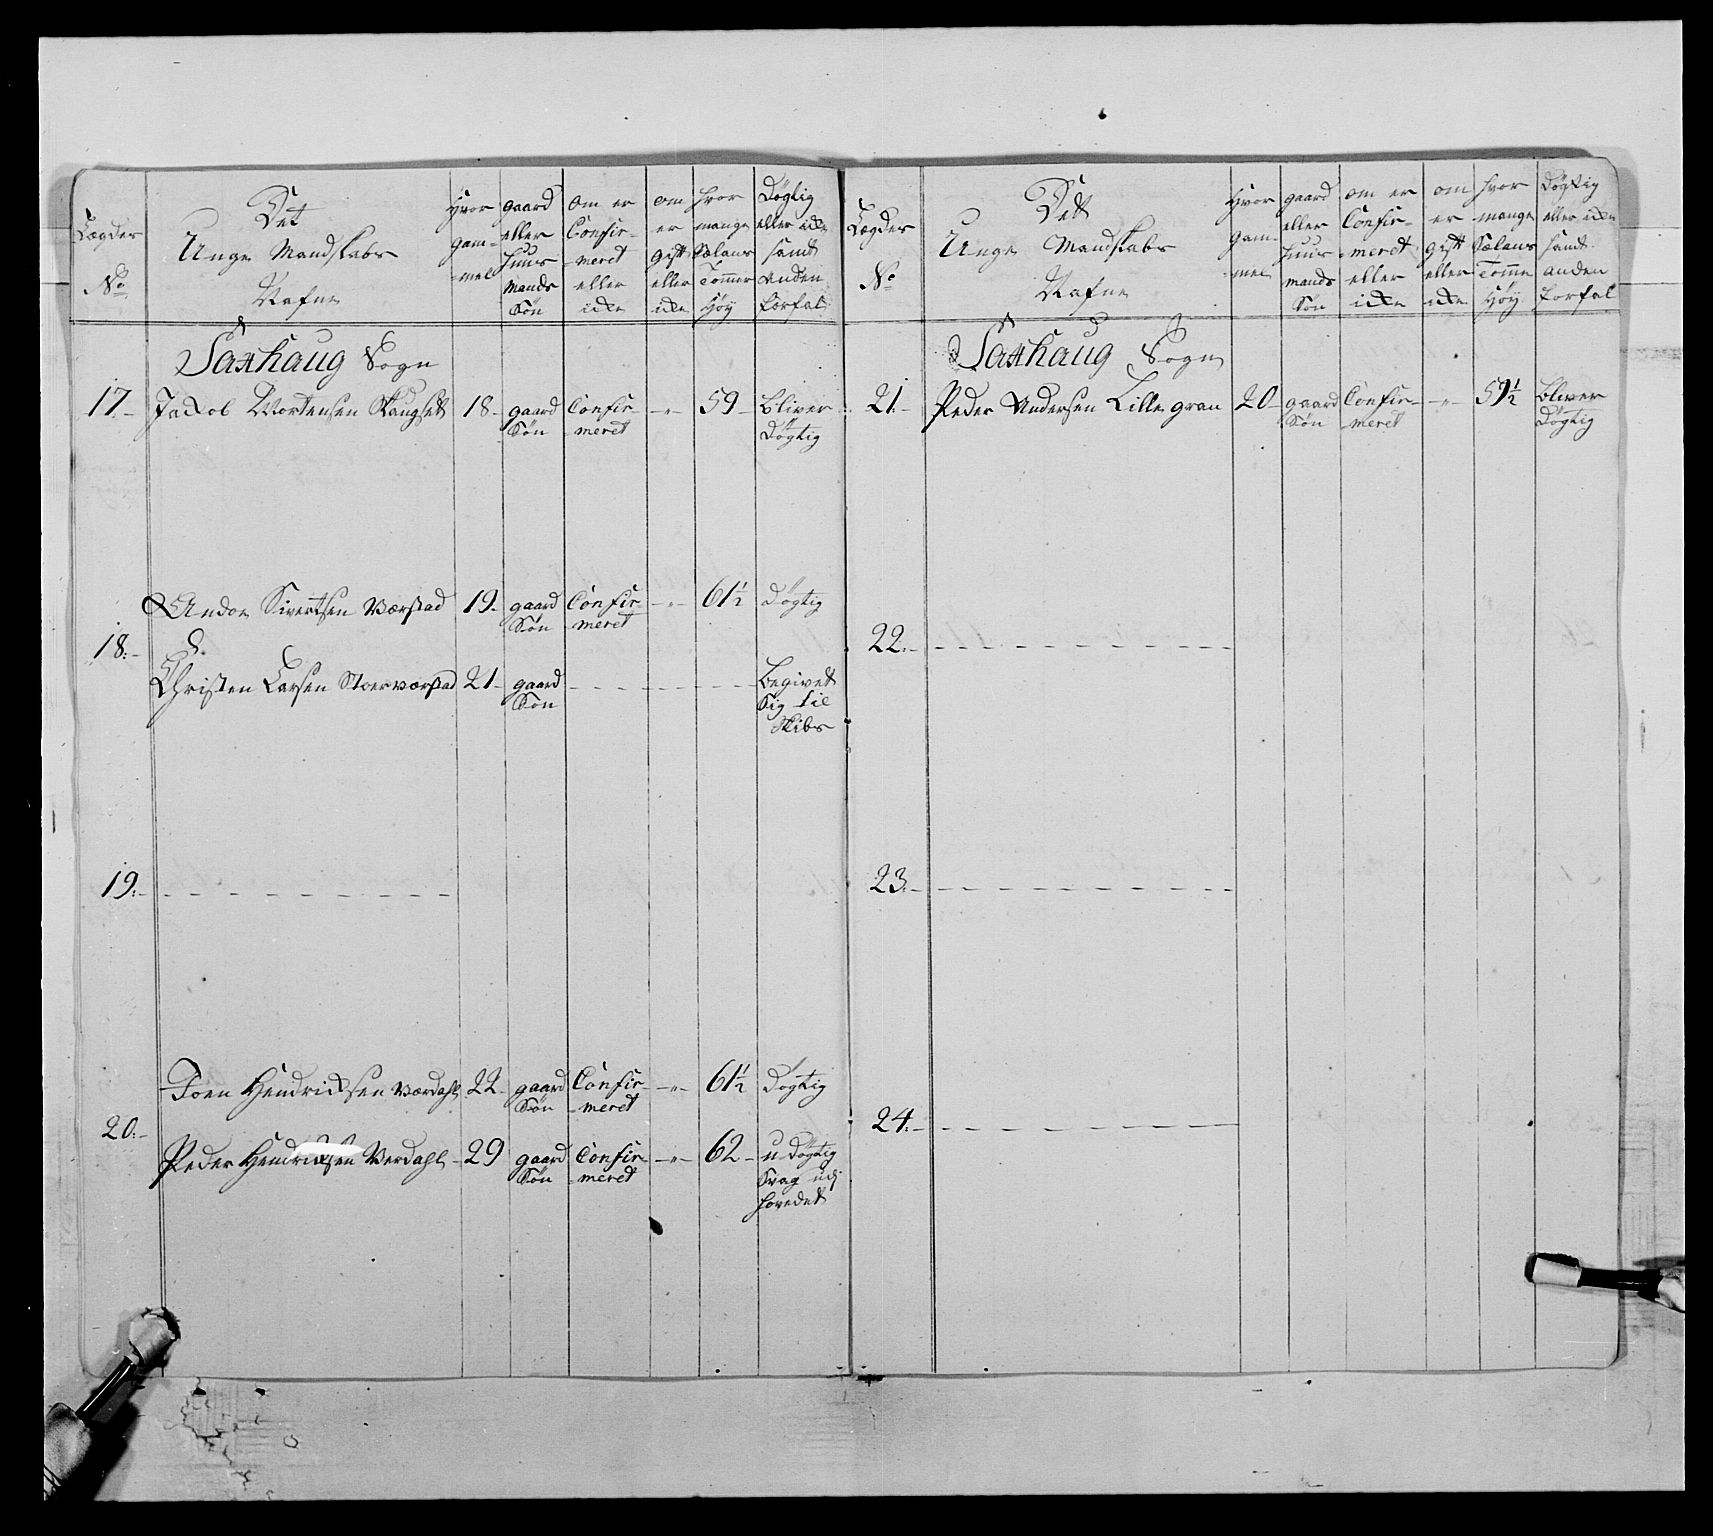 Lægder No
Det Unge Mandskabs Nafne
Hvor gam= =mel
gaard eller Huus mands Søn
om er Confir= =meret eller icke
om er gift eller icke
hvor mange Sælans Tommer Høy
Døgtig eller icke samt anden forfal
Saxhaug Sogn
17 Jackob Mortensen Haugset 18 gaard Søn Confir= =meret -"- 59 bliver Døgtig
18 Andor Sivertsen Værstad 19 gaard Søn Confir= =meret -"- 61½ Døgtig
Christen Larsen Stoerværstad 21 gaard Søn begivet Sig til Skibs
19
20 Joen Hendricksen Værdahl 22 gaard Søn Confir= =meret -"- 61½ Døgtig
Peder Hendricksen Verdahl 29 gaard Søn Confir= =meret -"- 62 u-Døgtig Svag udj hovedet
Lægder No
Dett Unge Mandskabs Nafne
Hvor gam= =mel
gaard eller Huus mands Søn
om er Confir= =meret eller icke
om er gift eller icke
hvor mange Sælans Tomme Høy
Døgtig eller icke samt anden forfal
Saxhaug Sogn
21 Peder Andersen Lille gran 20 gaard Søn Confir= =meret -"- 59½ bliver Døgtig
22
23
24